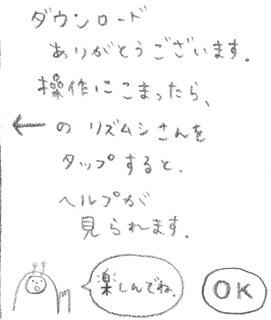 ダウンロード
ありがとうございます。
操作にこまったら、
←のリズムシさんを
タップすると、
ヘルプが
見られます。
楽しんでね。
OK